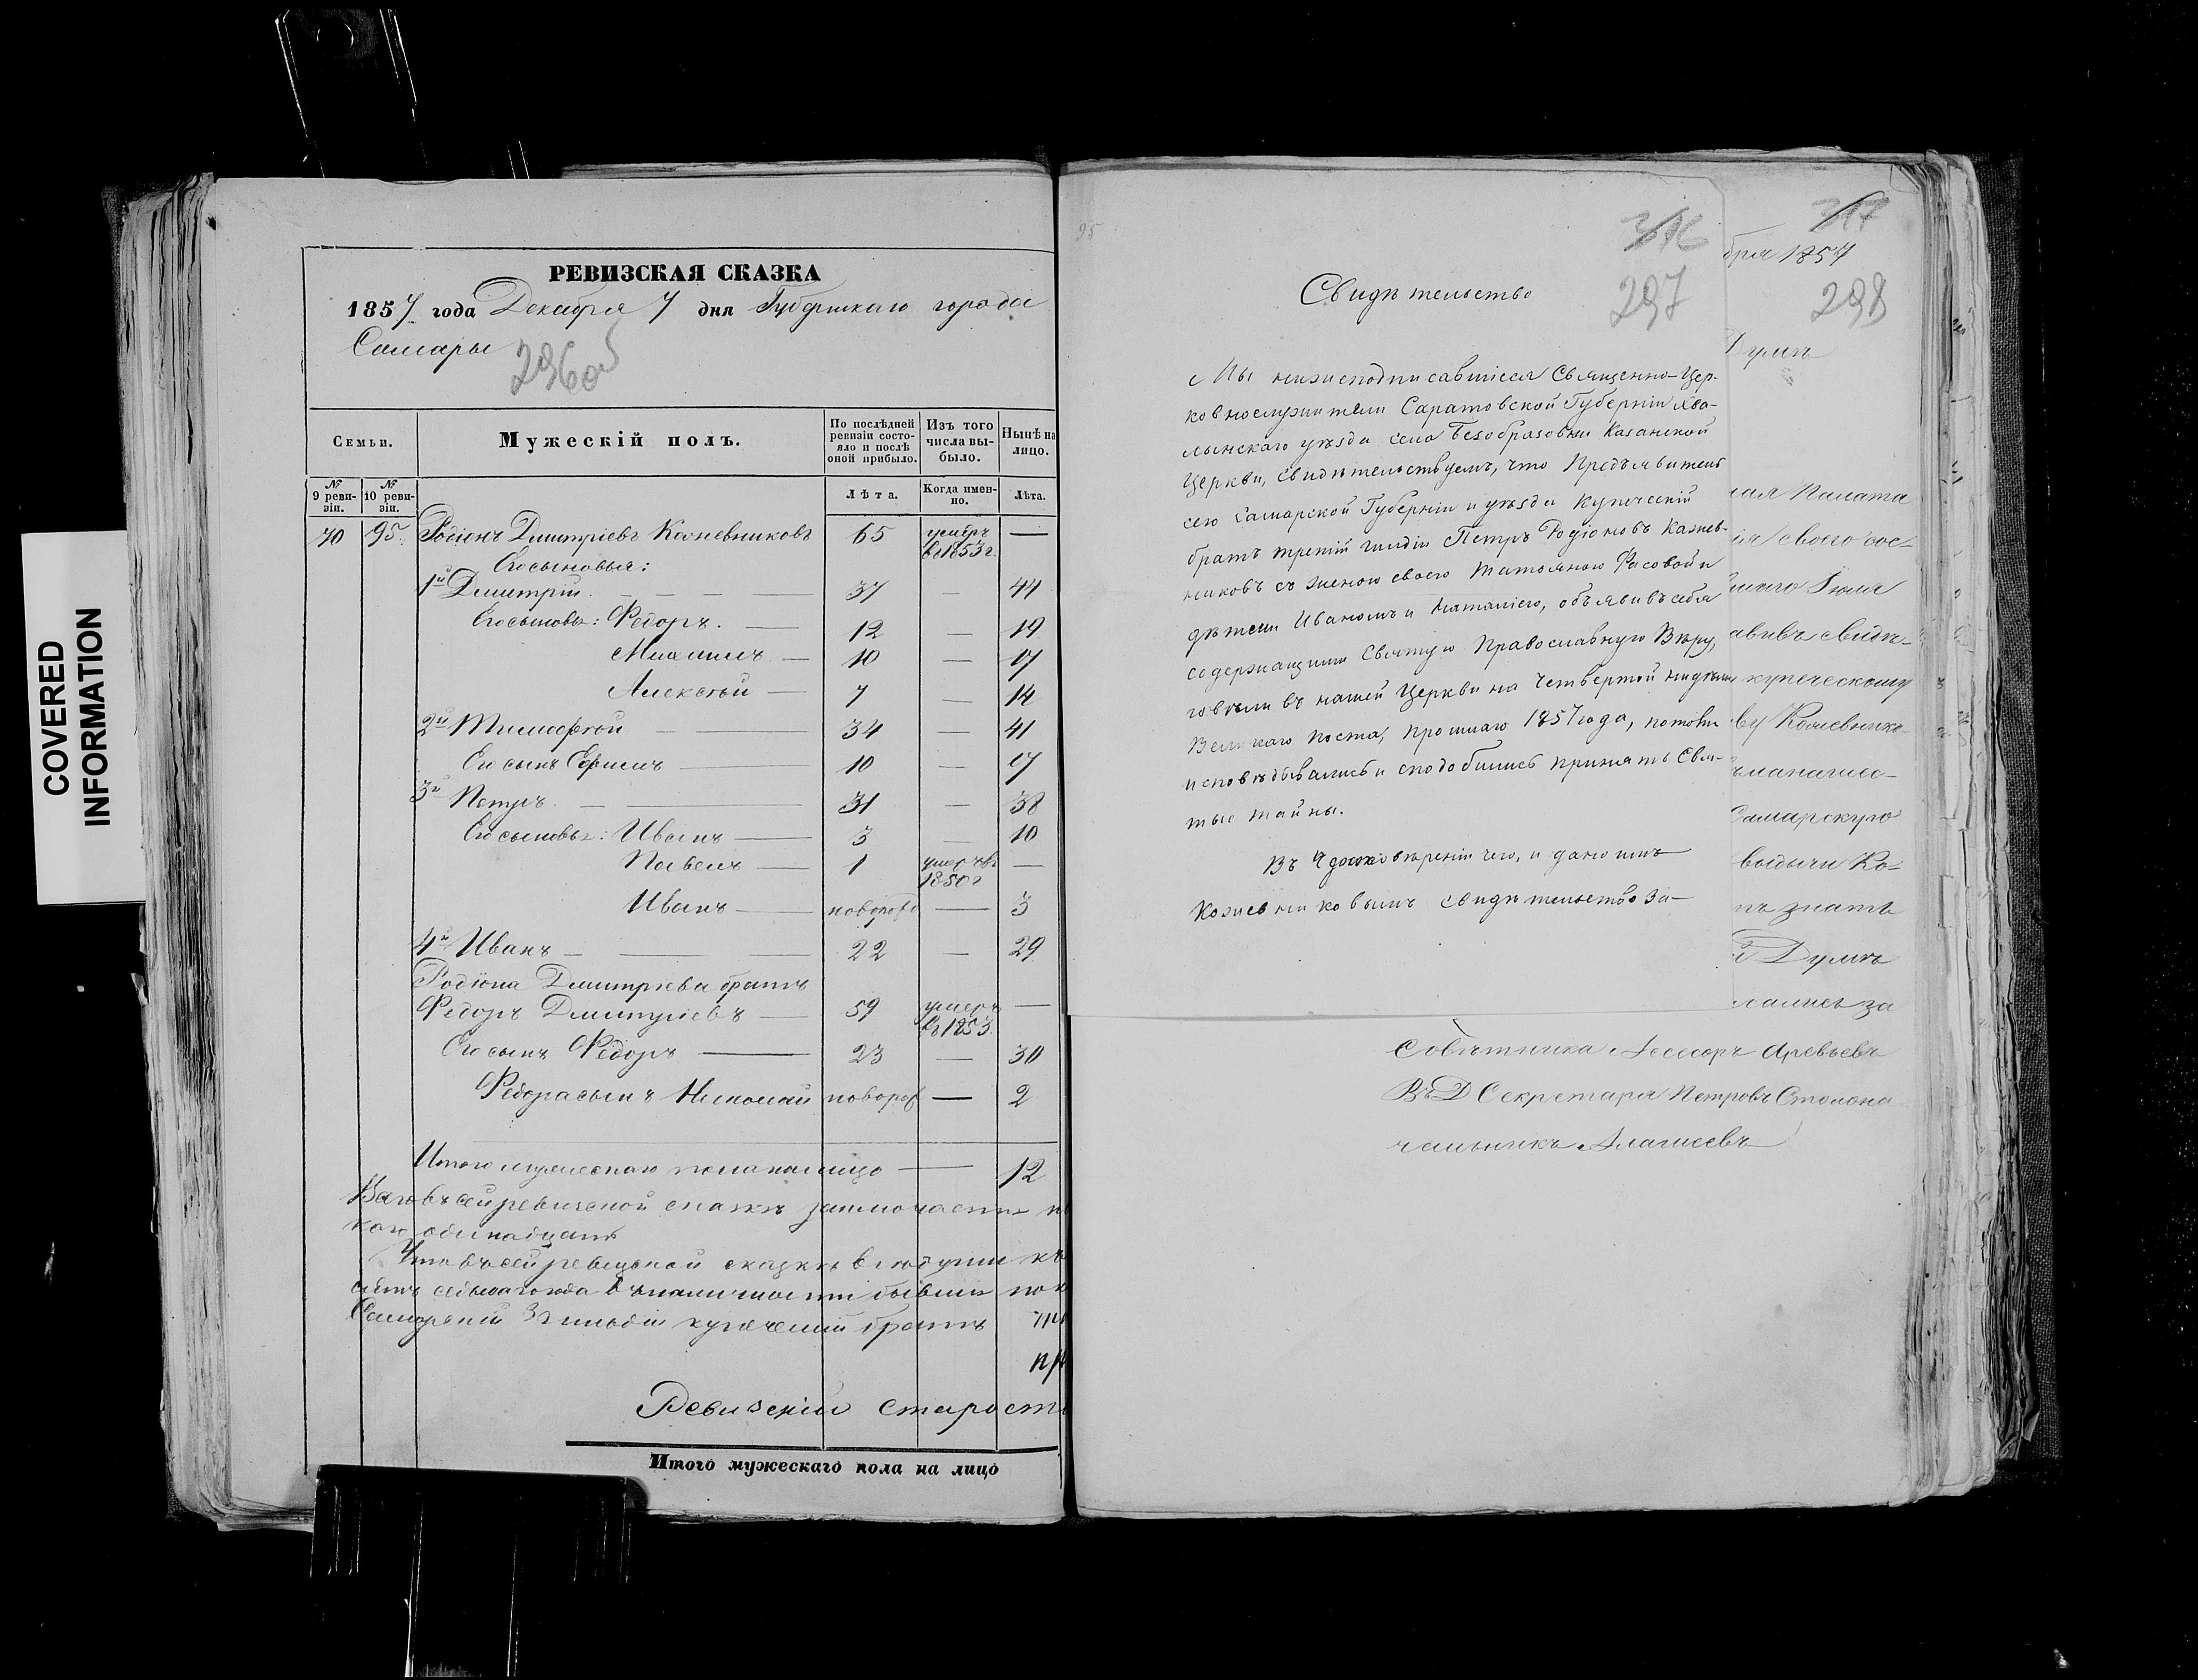 COVERED
INFORMATION
РЕВИЗСКАЯ СКАЗКА
1857 года Декабря 7 дня Губернскаго города
Самары
296об
Семьи.
Мужескій полъ.
По послѣдней ревизіи состояло и послѣ оной прибыло.
Изъ того числа выбыло.
Нынѣ на лицо.
№ 9 ревизіи.
№ 10 ревизіи.
Лѣта.
Когда именно.
Лѣта.
70 95 Родіонъ Дмитріевъ Кожевниковъ 65 умеръ въ 1853 г. —
Его сыновья:
1й Дмитрій — 37 — 44
Его сыновья: Федоръ. — 12 — 19
Михаилъ — 10 — 17
Алексѣй — 7 — 14
2й Тимофей — 34 — 41
Его сынъ Ефимъ — 10 — 17
3й Петръ — 31 — 38
Его сыновья: Иванъ — 3 — 10
Павелъ — 1 умеръ въ 1850 г —
Иванъ — новорожд — 3
4й Иванъ — 22 — 29
Родіона Дмитріева братъ
Федоръ Дмитріевъ — 59 умеръ въ 1853 —
Его сынъ Федоръ — 23 — 30
Федора сынъ Николай новорож — 2
Итого мужескаго пола на лицо — 12
Всего въ сей ревизской сказкѣ заключается
одинадцать
Что въ сей ревизской сказкѣ все души
Самарскій 3й гильдіи купеческій братъ
Ревизскій старост
Итого мужескаго пола на лицо
95
316
297
Свидѣтельство
Мы нижеподписавшіеся Священно-Цер-
ковнослужители Саратовской Губерніи Хва-
лынскаго уѣзда села Безобразовки Казанской
Церкви, свидѣтельствуемъ, что Предъявитель
сего Самарской Губерніи и уѣзда Купеческій
братъ третій гильдіи Петръ Родіоновъ Кожев-
никовъ съ женою своею Татьяною Фасовой и
дѣтьми Иваномъ и Наталіею, объявивъ себя
содержащими Святую Православную Вѣру,
говѣли въ нашей Церкви на четвертой недѣли
Великаго поста, прошлаго 1857 года,
исповѣдывались и сподобились принять Свя-
тые тайны.
Въ Удостовѣреніи чего, и дано имъ
Кожевниковымъ свидѣтельство за—
317
бря 1857
298
Думѣ
ная Палата
ія своего сос-
маго Іюля
авивъ свидѣ-
купеческому
ву Кожевнико-
Самарскую
выдачи Ко-
знать
Думѣ
за
Совѣтника Асессоръ Аревьевъ
ВъД Секретаря Петровъ Столона
чальникъ